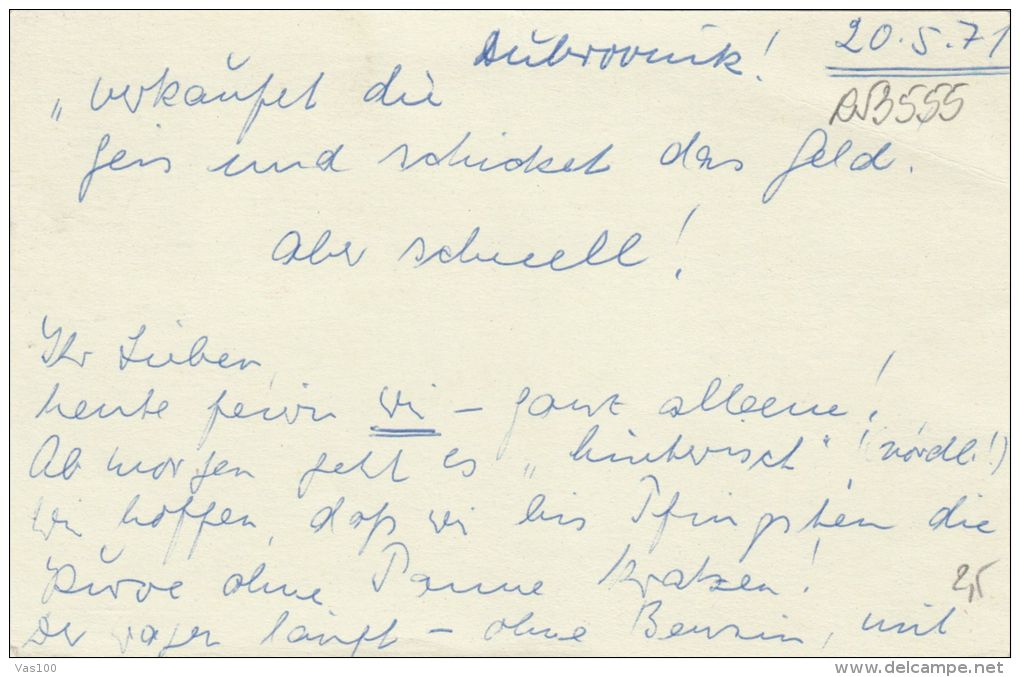 Dubrovnik! 20.5.71
"verkaufet die
RN3555
Geis und schicket das Geld.
Aber schnell!
Ihr Lieben,
heute feiern wir – ganz alleene!
Ab morgen geht es "hinterisch"! (nördl.!)
Wir hoffen, daß wir bis Pfingsten die
Kurve ohne Panne kratzen!
2,5
Der Wagen läuft – ohne Benzin, mit
Vas100
delcampe.net